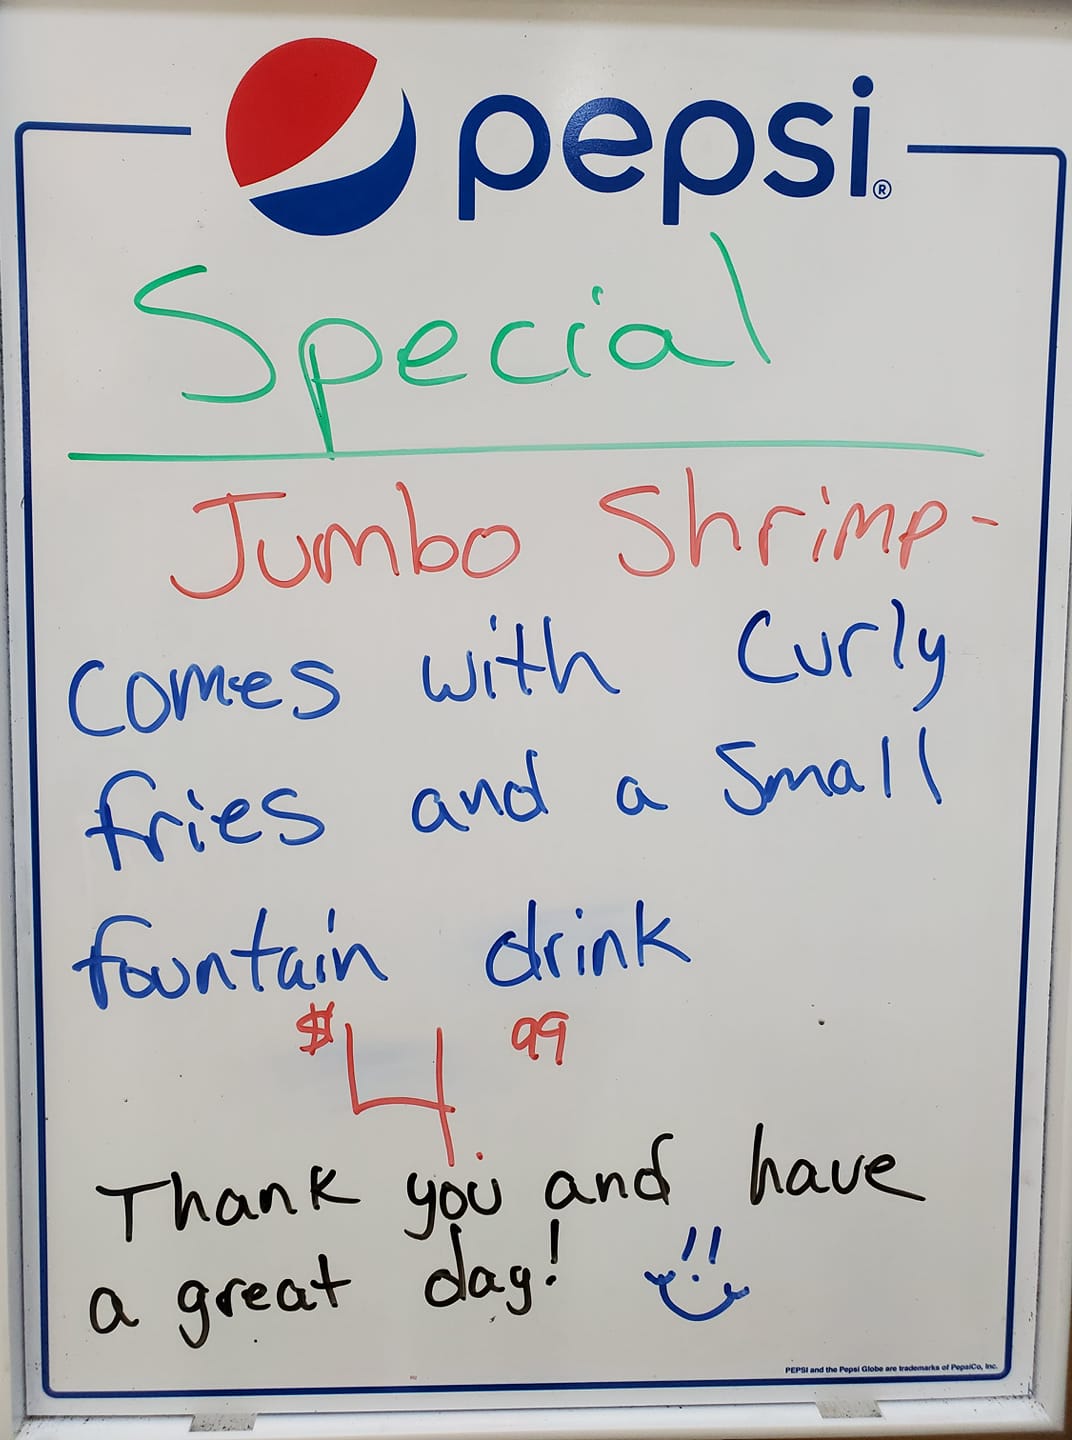 pepsi®
Special
Jumbo Shrimp-
Comes with Curly
fries and a Small
fountain drink
$4.99
Thank you and have
a great day!
PEPSI and the Pepsi Globe are trademarks of PepsiCo, Inc.